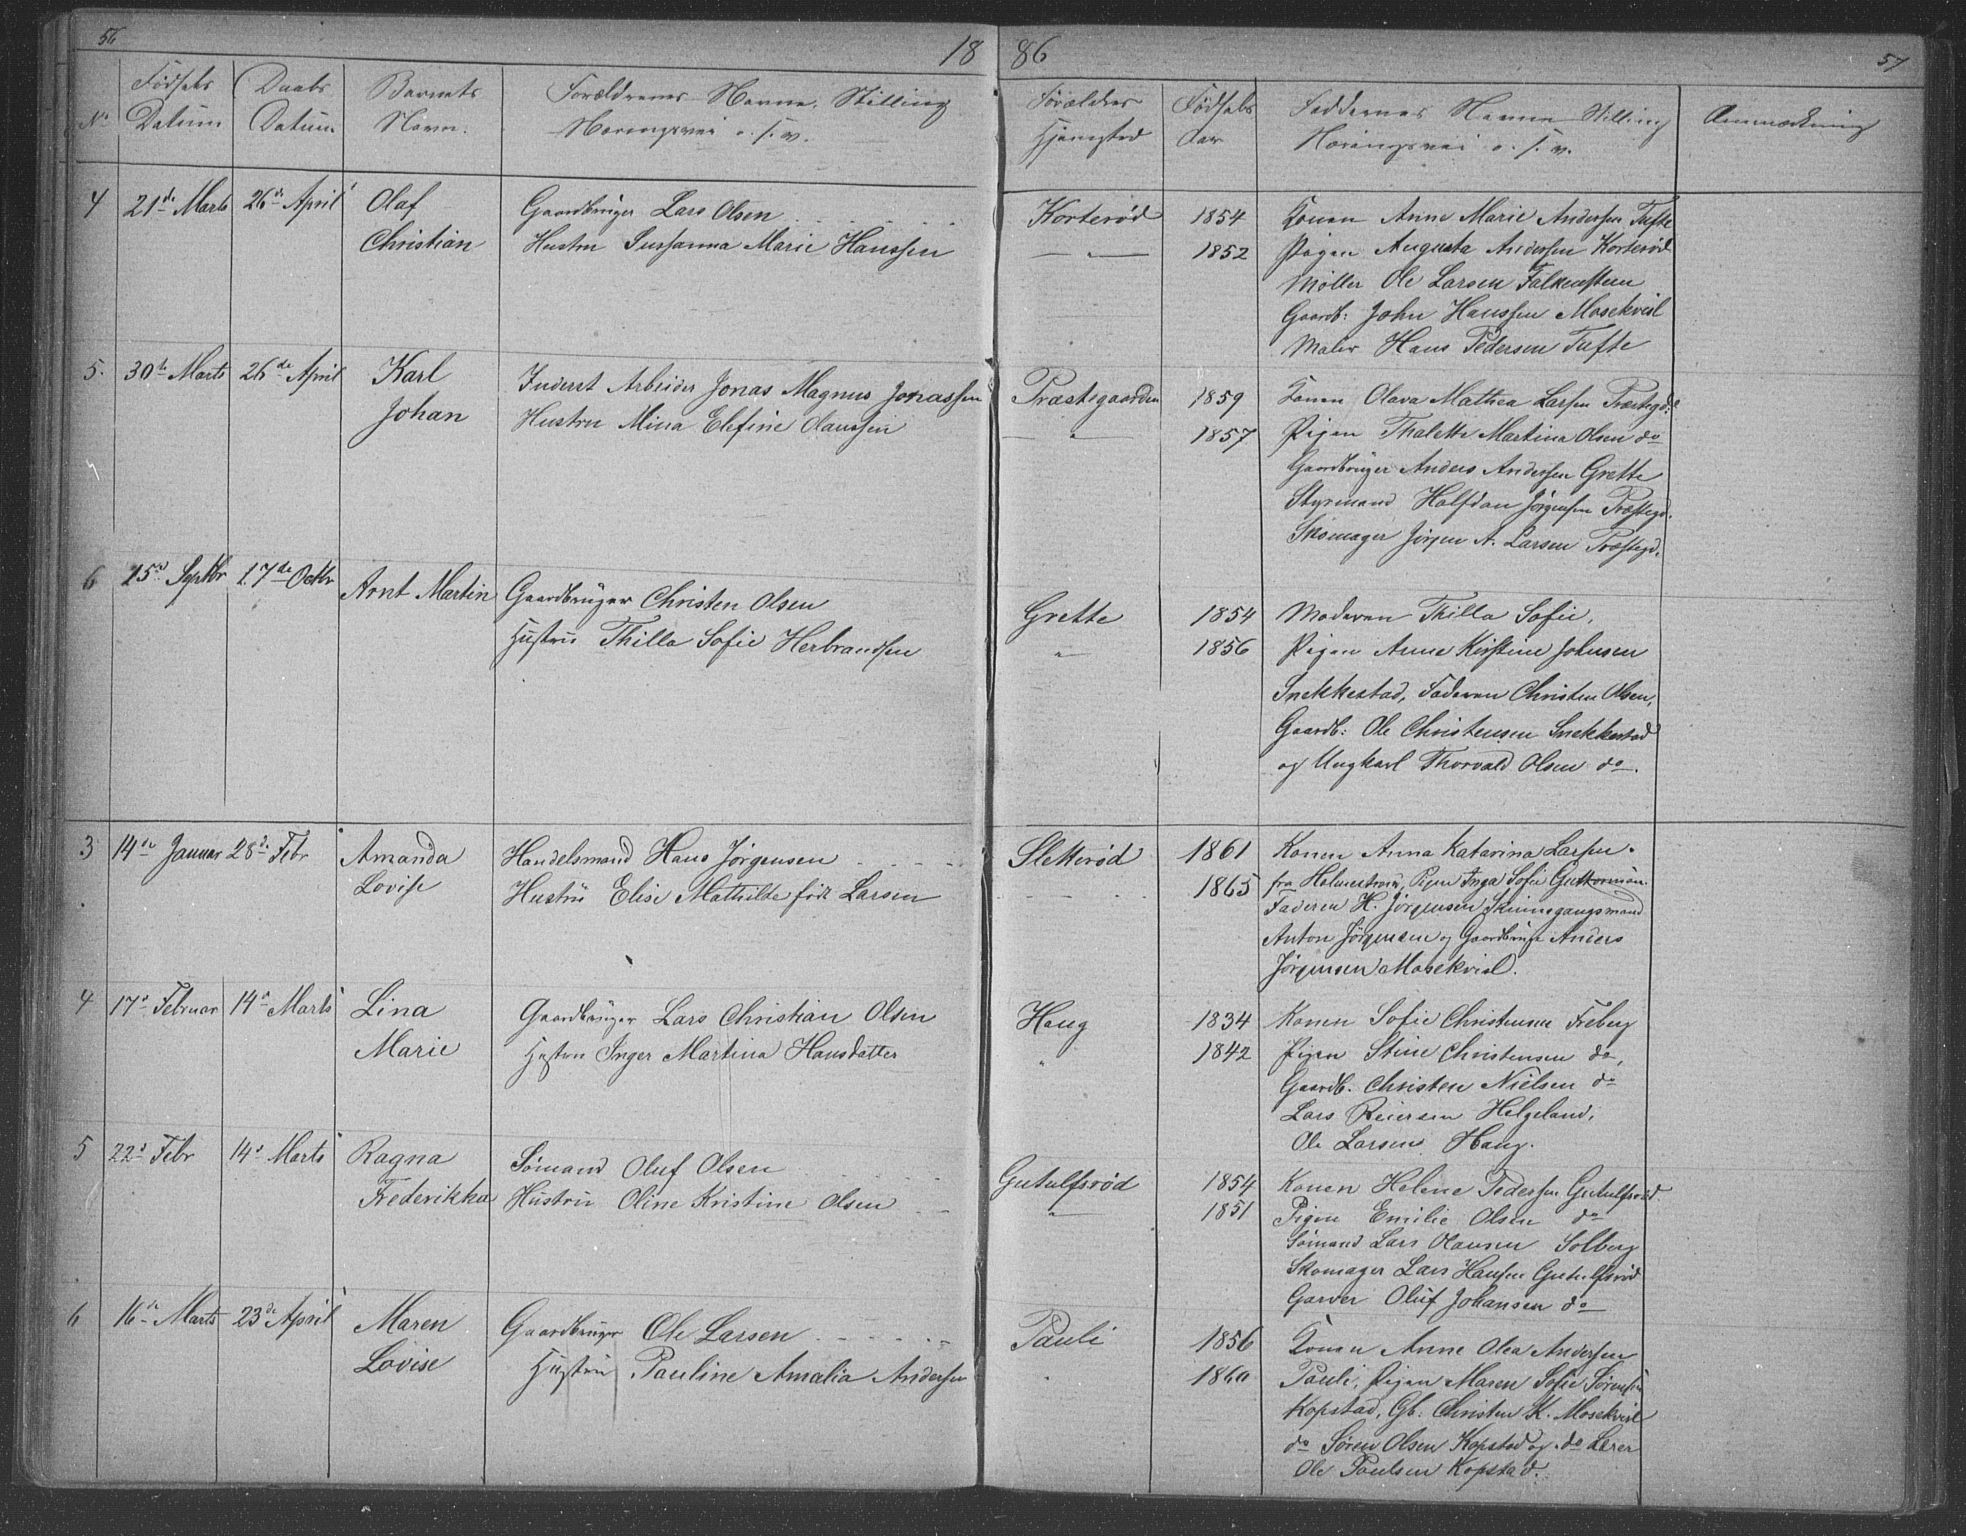 56
18
86
57
No
Fødsels Datum
Daabs Datum
Barnets Navn.
Forældrenes Navne, Stilling
Næringsvei o. s. v.
Forældres Hjemsted
Fødsels Aar
Faddernes Navne Stilling
Næringsvei o. s. v.
Anmærkning
4 21de Marts 26de April Olaf Gaardbruger Lars Olsen Korterød 1854 Konen Anne Marie Andersen Tufte
Christian Hustru Sussanna Marie Hanssen 1852 Pigen Augusta Andersen Korterød
Møller Ole Larsen Falkensteen
Gaardb: John Hanssen Mosekvisl
Maler Hans Pedersen Tufte
5. 30te Marts 26de April Karl Inderst Arbeider Jonas Magnus Jonassen Præstegaarden 1859 Konen Olava Mathea Larsen Præstegd:
Johan Hustru Mina Elefine Olaussen " 1857 Pigen Thalette Martina Olsen do
Gaardbruger Anders Andersen Grette
Styrmand Halfdan Jørgensen Præstegd.
Skomager Jørgen A. Larsen Præstegd.
6 25de Septbr 17de Octbr Arnt Martin Gaardbruger Christen Olsen Grette 1854 Moderen Thilla Sofie,
Hustru Thilla Sofie Herbrandsen " 1856 Pigen Anne Kirstine Johnsen
Snekkestad, Faderen Christen Olsen,
Gaardb: Ole Christensen Snekkestad
og Ungkarl Thorvald Olsen do.
3 14de Januar 28de Febr Amanda Handelsmand Hans Jørgensen Sletterød 1861 Konen Anna Katarina Larsen
Lovise Hustru Elise Mathilde født Larsen 1865 fra Holmestrand, Pigen Inga Sofie
Faderen H. Jørgensen
Anton Jørgensen og Gaardbruger Anders
Jørgensen Mosekvisl.
4 17de Februar 14de Marts Lina Gaardbruger Lars Christian Olsen Haug 1834 Konen Sofie Christensen Freberg
Marie Hustru Inger Martina Hansdatter " 1842 Pigen Stine Christensen do,
Gaardb. Christen Nielsen do
Lars Reiersen Helgeland,
Ole Larsen Haug.
5 22de Febr 14de Marts Ragna Sømand Oluf Olsen Gutulfsrød 1854 Konen Helene Pedersen Gutulfsrød.
Frederikka Hustru Oline Kristine Olsen " 1851 Pigen Emilie Olsen do
Sømand Lars Olausen Solberg
Skomager Lars Hansen Gutulfsrød
Garver Oluf Johansen do
6 16de Marts 23de April Maren Gaardbruger Ole Larsen Pauli 1856 Konen Anne Olea Andersen
Lovise Hustru Pauline Amalia Andersen " 1860 Pauli, Pigen Maren Sofie Sørensen
Kopstad, Gb. Christen K. Mosekvisl
do Søren Olsen Kopstad og do Lærer
Ole Paulsen Kopstad.